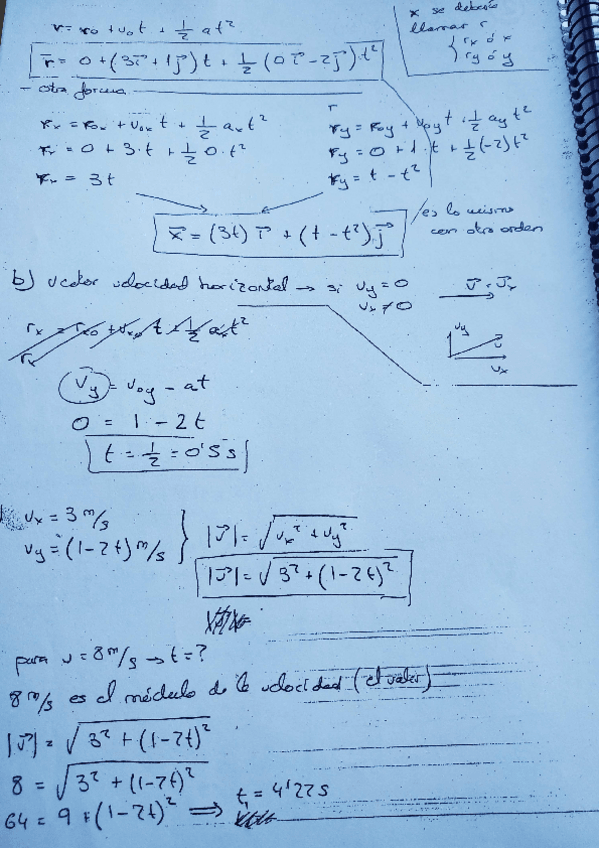 r = r₀ + v₀t + 1/2 at²
r⃗ = 0 + (3i⃗ + 1j⃗)t + 1/2 (0i⃗ - 2j⃗)t²
x se debería
llamar r
{ rx ó x
ry ó y
- otra forma
rx = r₀x + v₀x t + 1/2 ax t²
rx = 0 + 3·t + 1/2 0·t²
rx = 3t
r
ry = r₀y + v₀y t + 1/2 ay t²
ry = 0 + 1·t + 1/2 (-2)t²
ry = t - t²
x⃗ = (3t) i⃗ + (t - t²) j⃗
es lo mismo
con otro orden
b) vector velocidad horizontal → si vy = 0
vx ≠ 0
v⃗ = v⃗x
vy
v
vx
rx = rx₀ + v₀x t + 1/2 ax t²
rx
vy = v₀y - at
0 = 1 - 2t
t = 1/2 = 0'5 s
vx = 3 m/s
vy = (1-2t) m/s
|v⃗| = √(vx² + vy²)
|v⃗| = √(3² + (1-2t)²)
para v = 8 m/s → t = ?
8 m/s es el módulo de la velocidad (el valor)
|v⃗| = √(3² + (1-2t)²)
8 = √(3² + (1-2t)²)
64 = 9 + (1-2t)² ⇒ t₁ = 4'22 s